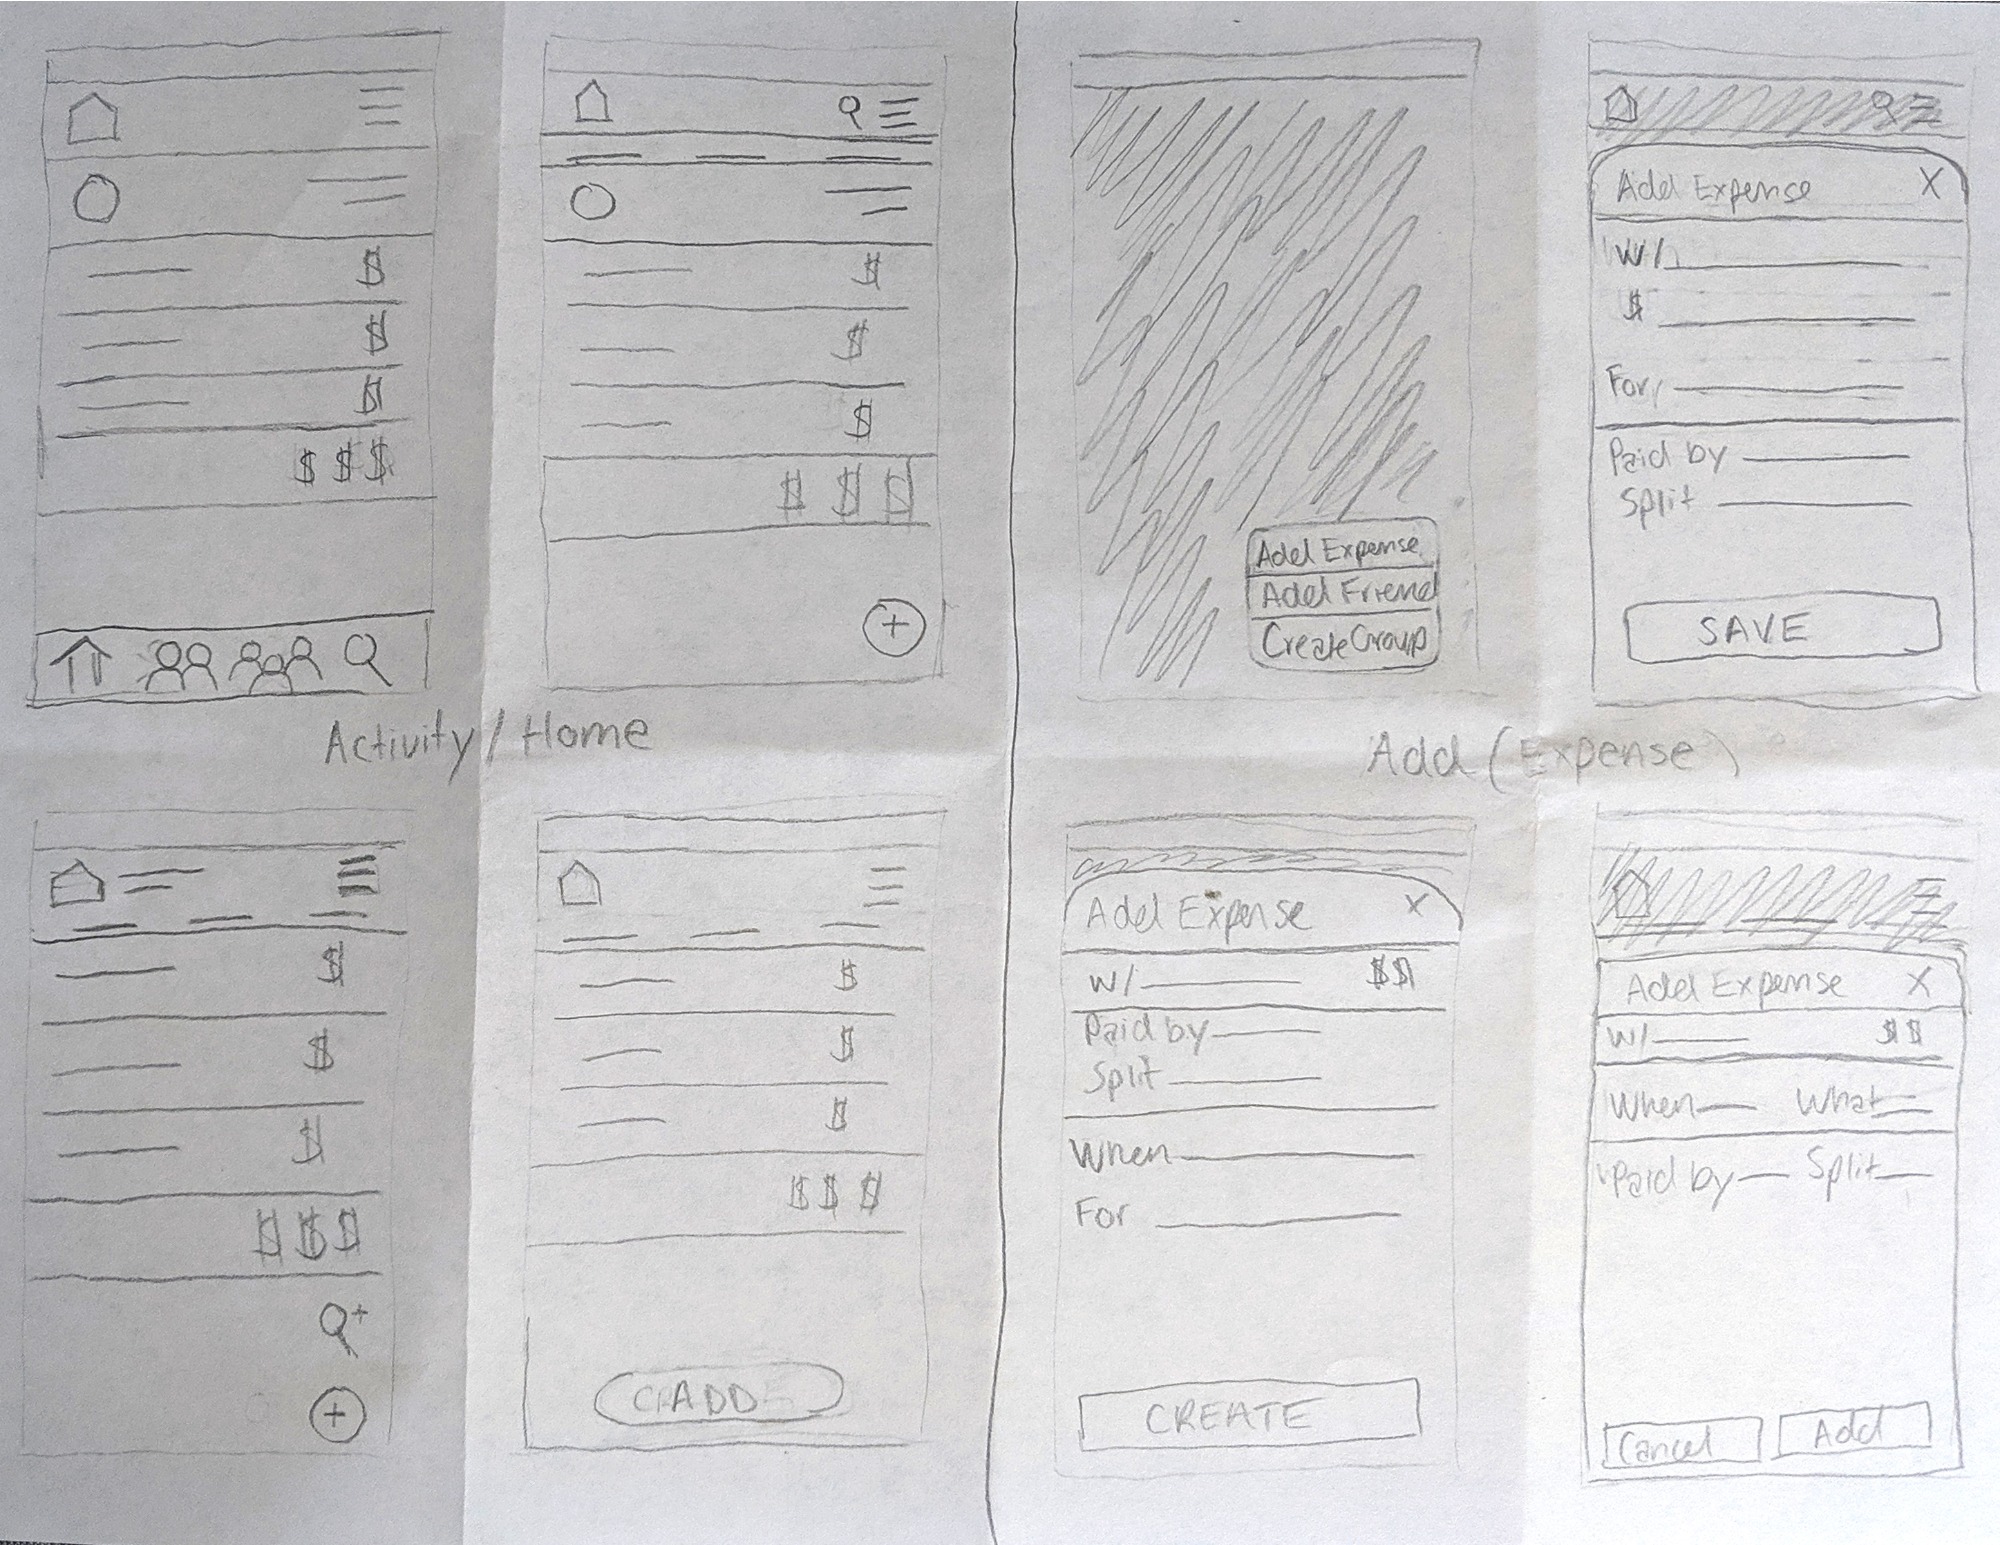 $
$
$
$ $ $
$
$
$
$ $ $
Add Expense
Add Friend
Create Group
Add Expense X
W/
$
For
Paid by
Split
SAVE
Activity / Home
Add (Expense)
$
$
$
$ $ $
$
$
$
$ $ $
ADD
Add Expense X
W/ $$
Paid by
Split
When
For
CREATE
Add Expense X
W/ $$
When What
Paid by Split
Cancel Add